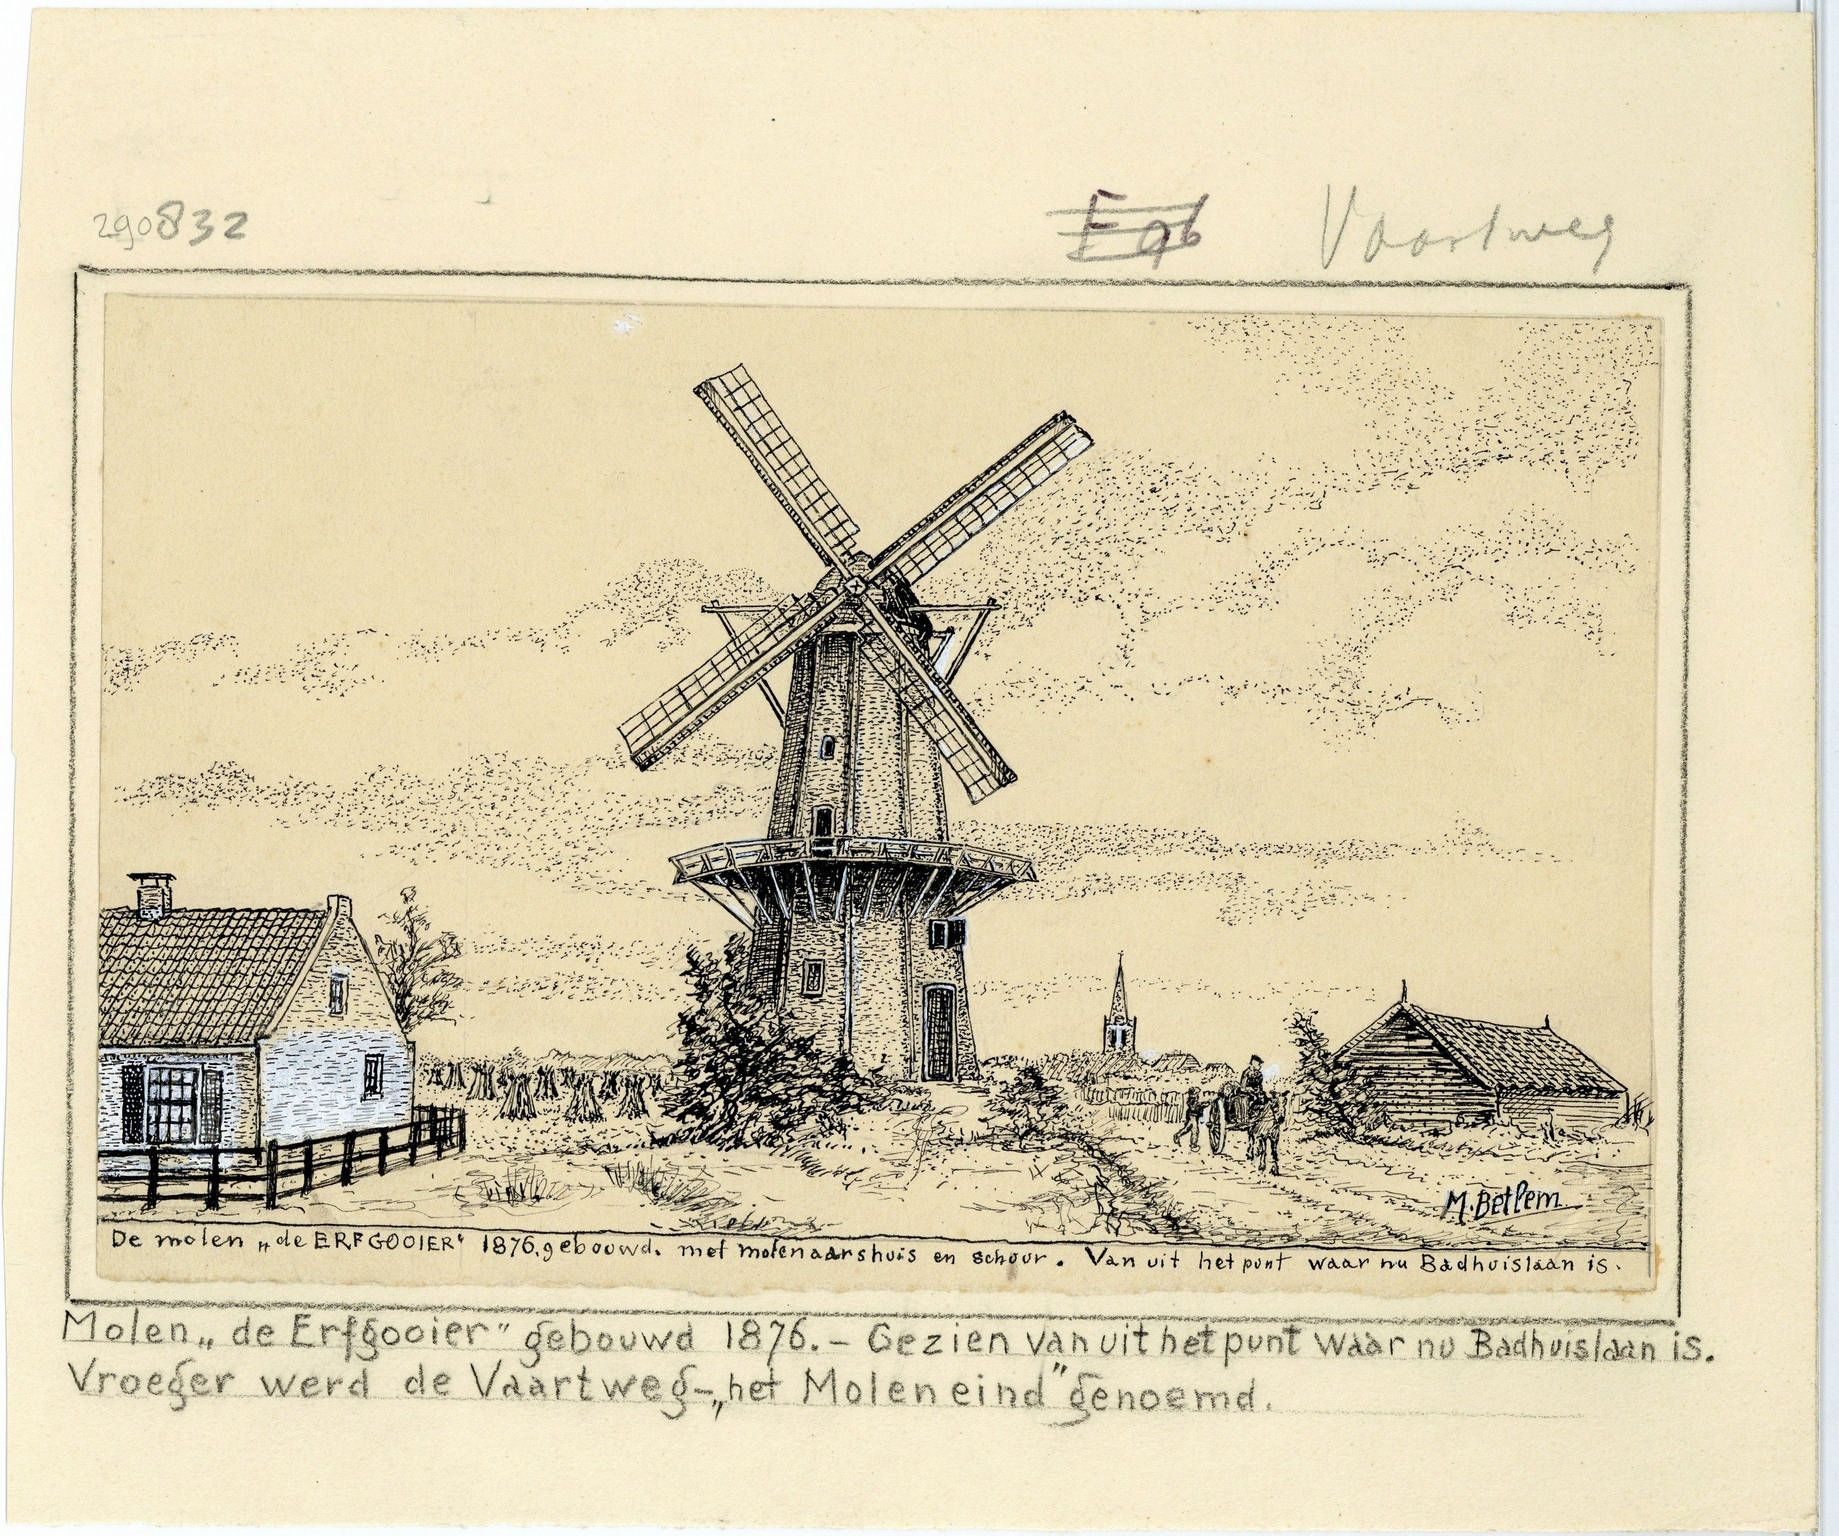 290832
E 96 Vaartweg
M. Betlem
De molen „de ERFGOOIER" 1876. gebouwd. met molenaarshuis en schuur. Van uit het punt waar nu Badhuislaan is.
Molen „de Erfgooier" gebouwd 1876. – Gezien van uit het punt waar nu Badhuislaan is.
Vroeger werd de Vaartweg – „het Moleneind" genoemd.